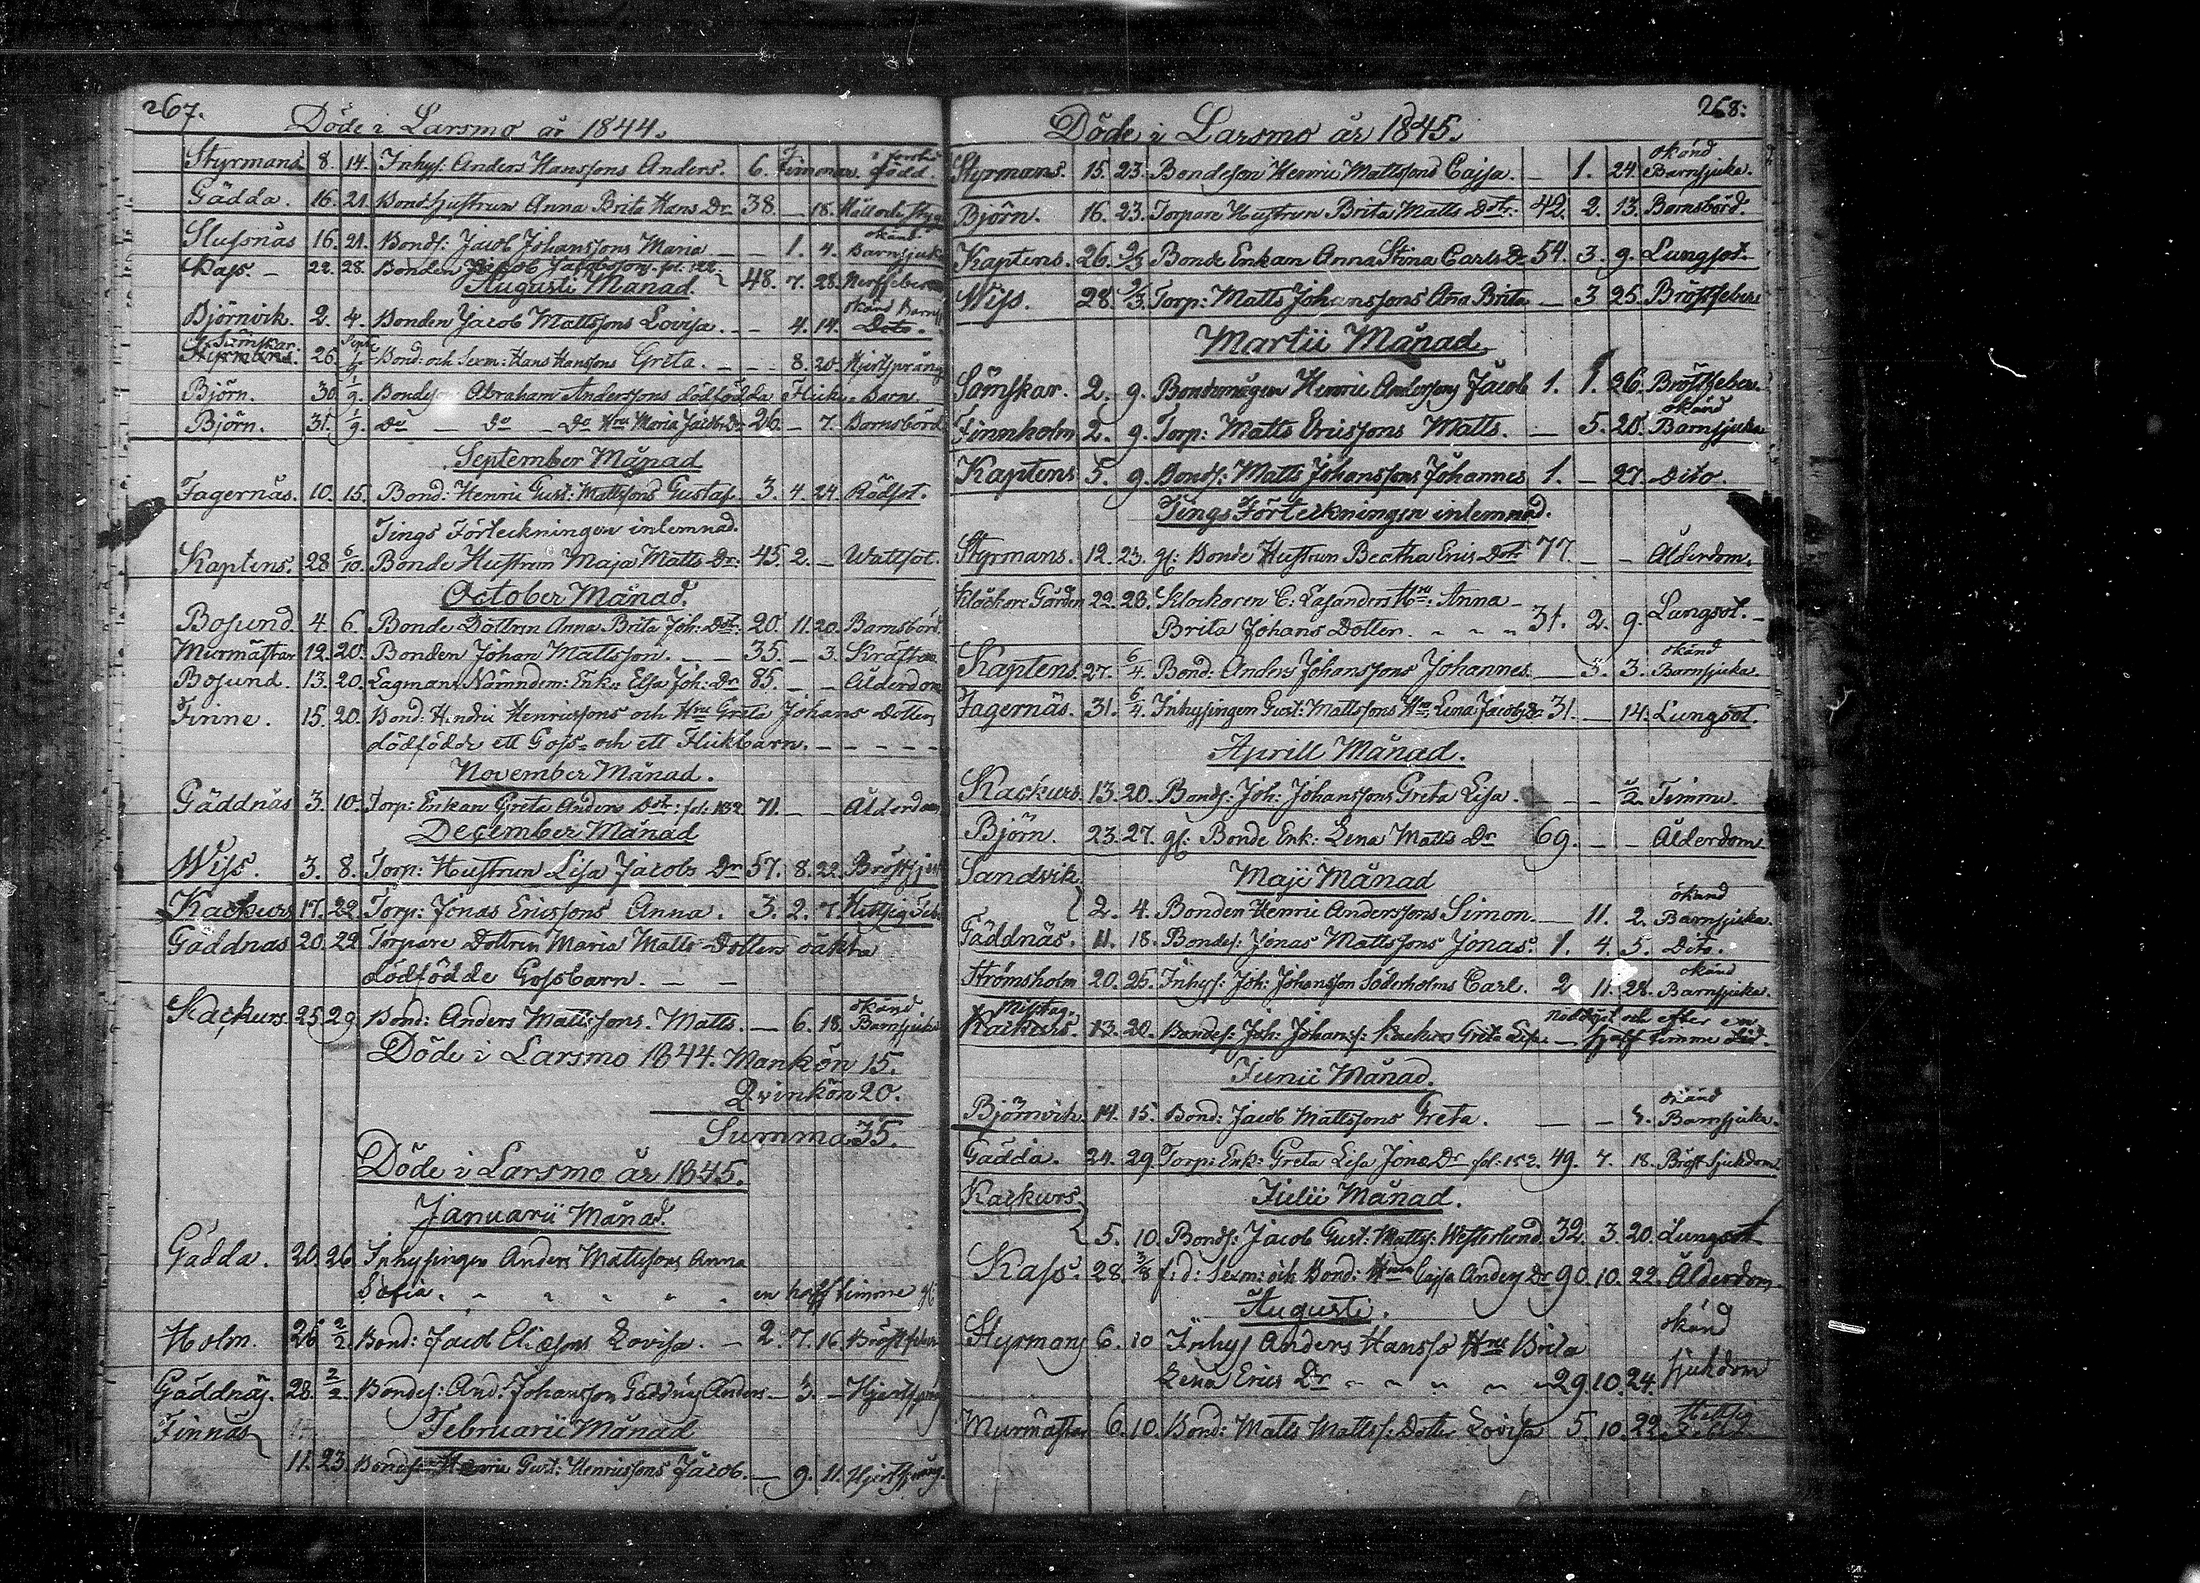 267.
Döde i Larsmo år 1844.
Styrmans. 8. 14. Inhys: Anders Hanssons Anders. 6. timmar. född.
Gädda. 16. 21. Bond. Hustrun Anna Brita Hans Dr 38. — 18. Håll och styng
Slussnäs 16. 21. Bonds: Jacob Johanssons Maria — 1. 4. okänd Barnsjuka
Kass. — 22. 28. Bonden Jacob Jacobsson. 48. 7. 28. Nerffeber
Augusti Månad.
Björnvik. 2. 4. Bonden Jacob Mattssons Lovisa. — — 4. 14. okänd Barnsj Dito.
Sämskar. Styrmans. 26. 1/9 Bond: och Sexm: Hans Hanssons Greta. — — 8. 20. Hjertsprång
Björn. 30. 1/9. Bondeson Abraham Anderssons dödfödda Flicke Barn.
Björn. 31. 1/9. do — do — do Hru Maria Jacobs Dr 26. — 7. Barnsbörd
September Månad
Fagernäs. 10. 15. Bond: Henric Gust: Mattssons Gustaf 3. 4. 24. Rödsot.
Tings Förteckningen inlemnad.
Kaptens. 28. 6/10. Bonde Hustrun Maja Matts Dr: 45. 2. — Wattsot.
October Månad.
Bosund. 4. 6. Bonde Dottren Anna Brita Joh: Dotr: 20. 11. 20. Barnsbörd
Murmästar 12. 20. Bonden Johan Mattsson. — — 35. — 3. Kräftan
Bosund. 13. 20. Lagmans Nämndem: Enk: Elsa Joh: Dr 85. — — Ålderdom
Finne. 15. 20. Bond. Hindric Henricssons och Hru Greta Johans Dotters
dödfödde ett Goss- och ett Flickbarn. — — — — —
November Månad.
Gäddnäs 3. 10. Torp: Enkan Greta Anders Dotr: fol: 132 71. — — Ålderdom
December Månad
Wiss. 3. 8. Torp: Hustrun Lisa Jacobs Dr 57. 8. 22. Bröstsjuk
Kackurs 17. 22. Torp: Jonas Ericssons Anna. 3. 2. 7. Hettsig Feb.
Gäddnäs 20. 29. Torpare Dottren Maria Matts Dotters oäkta
dödfödde Gossbarn. — —
Kackurs 25. 29. Bond: Anders Mattssons. Matts. — 6. 18. okänd Barnsjuka
Döde i Larsmo 1844. Mankön 15.
Qvinkön 20.
Summa 35.
Döde i Larsmo år 1845.
Januarii Månad.
Gädda. 20. 26. Inhysingen Anders Mattssons Anna
Sofia. en half timme gl
Holm. 26. 2/2 Bond: Jacob Eliæsons Lovisa. — 2. 7. 16. Bröstfeber
Gäddnäs. 28. 2/2. Bondes: And: Johansson Gäddnäs Anders — 3. — Hjertsprång
Finnäs
Februarii Månad
11. 23. Bondes: Henric Gust: Henricssons Jacob. — 9. 11. Hjertsprång.
268:
Döde i Larsmo år 1845.
Styrmans. 15. 23. Bondeson Henric Mattssons Cajsa. — 1. 24. okänd Barnsjuka.
Björn. 16. 23. Torpare Hustrun Brita Matts Dotr: 42. 2. 13. Barnsbörd.
Kaptens. 26. 2/3 Bonde Enkan Anna Stina Carls Dr 54. 3. 9. Lungsot.
Wiss. 28. 2/3. Torp: Matts Johanssons Ana Brita — 3 25. Bröstfeber
Martii Månad
Sämskar. 2. 9. Bondemågen Henric Anderssons Jacob 1. 1. 26. Bröstfeber.
Finnholm 2. 9. Torp: Matts Ericssons Matts. — 5. 20. okänd Barnsjuka
Kaptens 5. 9. Bonds: Matts Johanssons Johannes 1. — 27. Dito.
Tings Förteckningen inlemnad.
Styrmans. 12. 23. gl: Bonde Hustrun Beatha Erics Dotr 77. — — Ålderdom.
Klockare Gården 22. 23. Klockaren C: Casanders Hru: Anna
Brita Johans Dotter. 31. 2. 9. Lungsot.
Kaptens. 27. 6/4. Bond: Anders Johanssons Johannes. — 3. 3. okänd Barnsjuka.
Fagernäs. 31. 6/4. Inhysingen Gust: Mattssons Hru Lena Jacobs Dr 31. — 14. Lungsot.
Aprill Månad.
Kackurs. 13. 20. Bonds: Joh: Johanssons Greta Lisa. — — 1/2. Timme.
Björn. 23. 27. gl: Bonde Enk: Lena Matts Dr 69. — — Ålderdom
Sandvik
Maji Månad
2. 4. Bonden Henric Anderssons Simon. — 11. 2. okänd Barnsjuka.
Gäddnäs. 11. 18. Bondes: Jonas Mattssons Jonas. 1. 4. 5. Dito.
Strömsholm 20. 25. Inhys: Joh: Johansson Söderholms Carl. 2 11. 28. okänd Barnsjuka.
Misstag. Kackurs. 13. 20. Bondes: Joh: Johanss: Kackurs Greta Lisa. — Nöddöpt och efter en half timme död.
Junii Månad.
Björnvik. 14. 15. Bond: Jacob Mattssons Greta. — — okänd Barnsjuka.
Gädda. 24. 29. Torp: Enk: Greta Lisa Jonæ Dr fol: 152. 49. 7. 18. Bröst sjukdom
Kackurs.
Julii Månad.
5. 10. Bonds: Jacob Gust: Matts: Westerlund. 32. 3. 20. Lungsot
Kass. 28. 3/8 f: d: Sexm: och Bond: Hrun Cajsa Anders Dr 90. 10. 22. Ålderdom.
Augusti.
Styrmans 6. 10 Inhys Anders Hanss Hrus Brita
Lena Erics Dr 29. 10. 24. okänd sjukdom
Murmästar 6. 10. Bond: Matts Matts: Dotter Lovisa 5. 10. 22. Hettsig Feber.